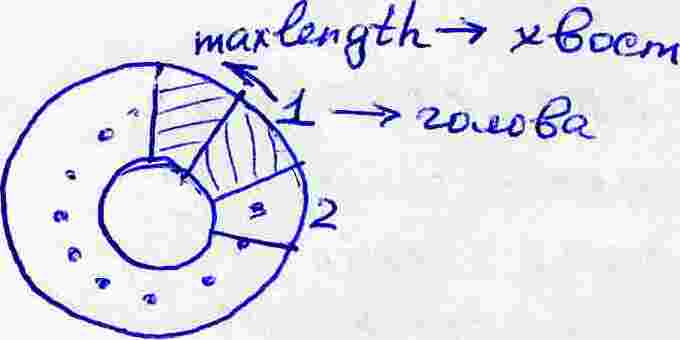 maxlength → хвост
1 → голова
2